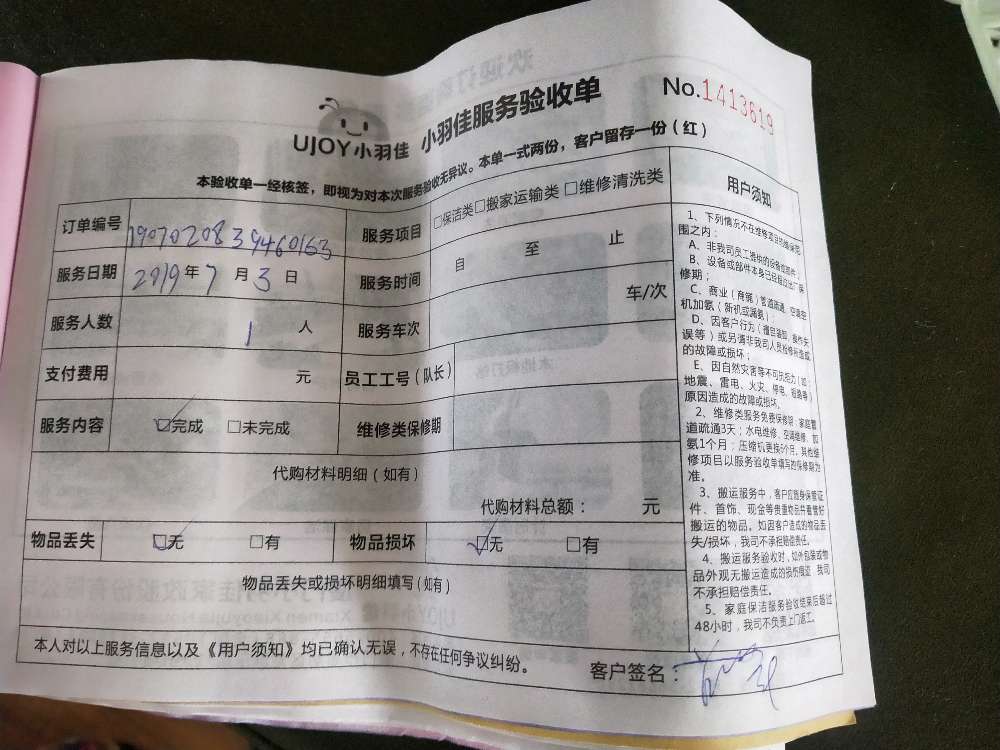 UJOY小羽佳 小羽佳服务验收单
No.1413619
本验收单一经核签，即视为对本次服务验收无异议。本单一式两份，客户留存一份（红）
订单编号 服务项目 □保洁类□搬家运输类 □维修清洗类
服务日期 2019年7月3日 服务时间 自 至 止
服务人数 1 人 服务车次 车/次
支付费用 元 员工工号（队长）
服务内容 ☑完成 □未完成 维修类保修期
代购材料明细（如有）
代购材料总额： 元
物品丢失 ☑无 □有 物品损坏 ☑无 □有
物品丢失或损坏明细填写（如有）
本人对以上服务信息以及《用户须知》均已确认无误，不存在任何争议纠纷。
客户签名：
用户须知
1、下列情况不在维修项目的保修范
围之内：
A、非我司员工提供的设备或部件；
B、设备或部件本身已经超过出厂保
修期；
C、商业（商铺）管道疏通、空调空
机加氨（新机或漏氨）；
D、因客户行为（擅自装卸、操作失
误等）或另请非我司人员检修所造成
的故障或损坏；
E、因自然灾害等不可抗拒力（如：
地震、雷电、火灾、停电、短路等）
原因造成的故障或损坏。
2、维修类服务免费保修期：家庭管
道疏通3天；水电维修、空调维修、加
氨1个月；压缩机更换6个月，其他维
修项目以服务验收单填写的保修期为
准。
3、搬运服务中，客户应随身保管证
件、首饰、现金等贵重物品并看管好
搬运的物品。如因客户造成的物品丢
失/损坏，我司不承担赔偿责任。
4、搬运服务验收时，如外包装或物
品外观无搬运造成的损伤痕迹，我司
不承担赔偿责任。
5、家庭保洁服务验收结束后超过
48小时，我司不负责上门返工。